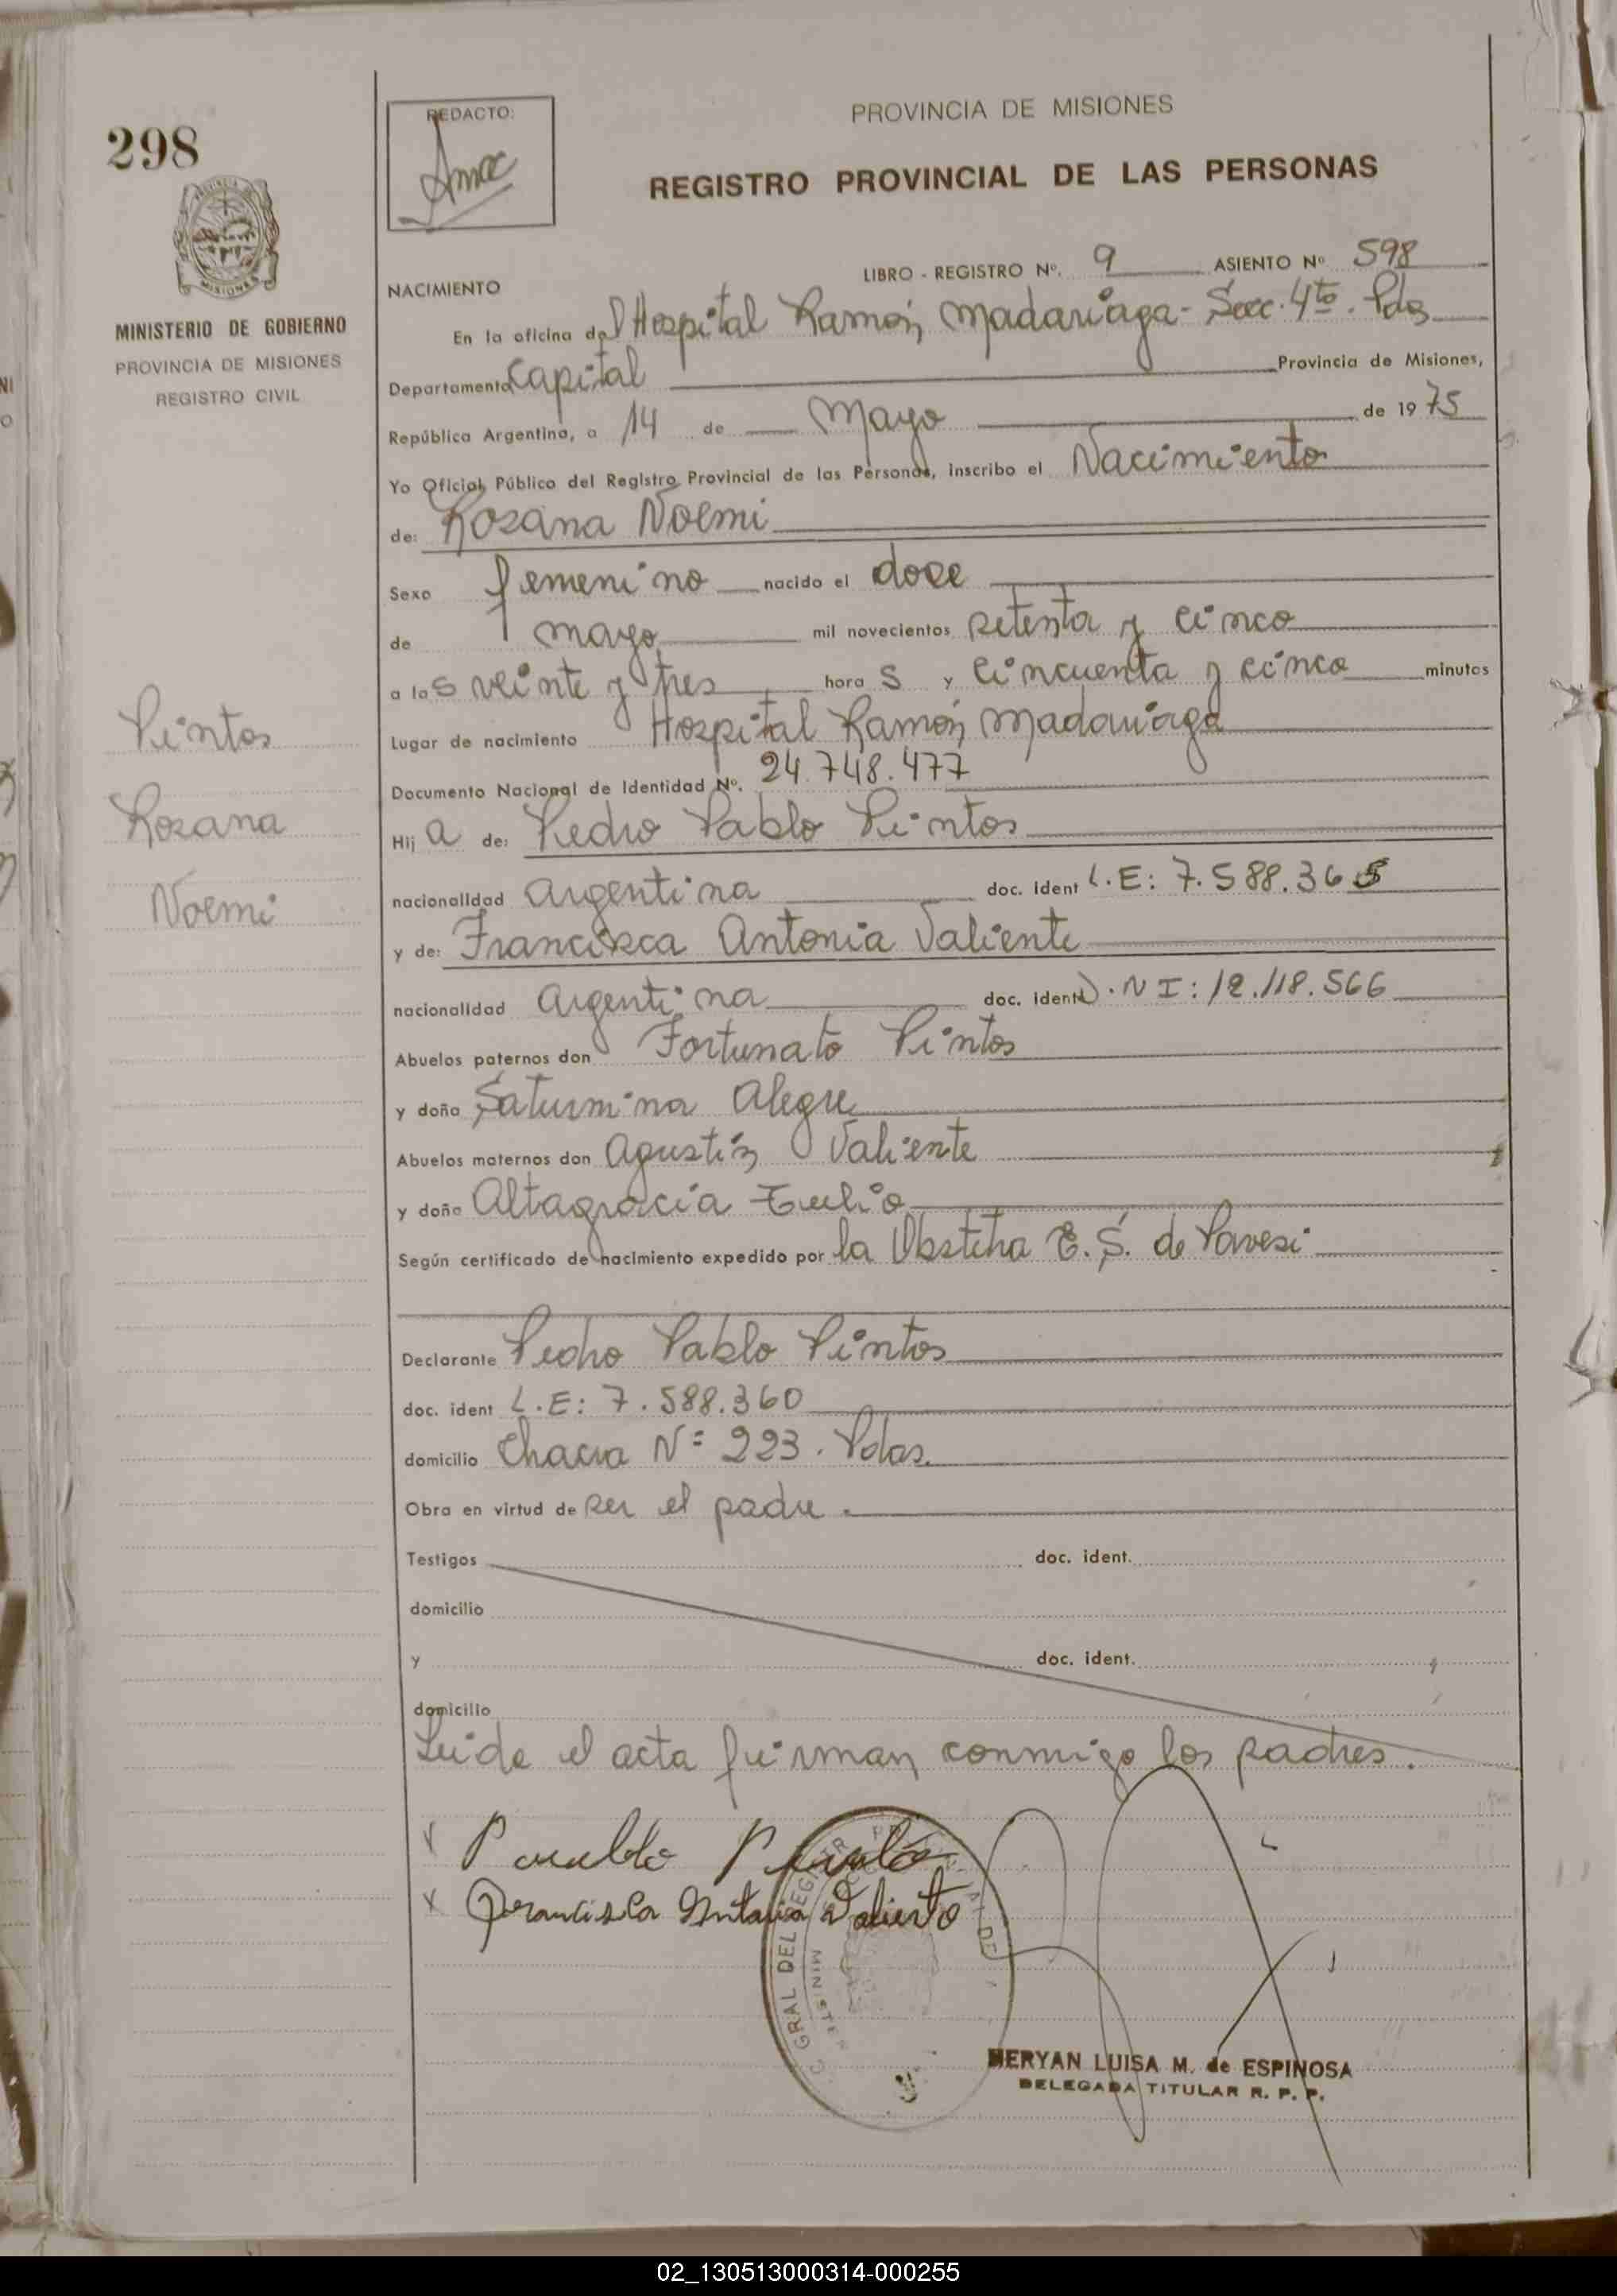 298
REDACTO:
PROVINCIA DE MISIONES
REGISTRO PROVINCIAL DE LAS PERSONAS
MINISTERIO DE GOBIERNO
PROVINCIA DE MISIONES
REGISTRO CIVIL
LIBRO - REGISTRO Nº. 9 ASIENTO Nº 598
NACIMIENTO
En la oficina del Hospital Ramón Madariaga - Secc. 4to. Pdas
Departamento Capital Provincia de Misiones,
República Argentina, a 14 de Mayo de 1975
Yo Oficial Público del Registro Provincial de las Personas, inscribo el Nacimiento
de: Rosana Noemi
Sexo femenino nacido el doce
de mayo mil novecientos setenta y cinco
a las veinte y tres hora s y cincuenta y cinco minutos
Lugar de nacimiento Hospital Ramón Madariaga
Documento Nacional de Identidad Nº. 24.748.477
Hij a de: Pedro Pablo Pintos
nacionalidad argentina doc. ident L.E: 7.588.36
y de: Francisca Antonia Valiente
nacionalidad argentina doc. ident D.NI: 12.118.566
Abuelos paternos don Fortunato Pintos
y doña Saturnina Alegre
Abuelos maternos don Agustín Valiente
y doña Altagracia
Según certificado de nacimiento expedido por la Obstetra E.S. de Pavesi
Pintos
Rosana
Noemi
Declarante Pedro Pablo Pintos
doc. ident L.E: 7.588.360
domicilio Chacra Nº 223. Pdas.
Obra en virtud de ser el padre.
Testigos doc. ident.
domicilio
y doc. ident.
domicilio
Leida el acta firman conmigo los padres.
Francisca Antonia Valiente
GRAL DEL
MERYAN LUISA M. de ESPINOSA
DELEGADA TITULAR R. P. P.
02_130513000314-000255